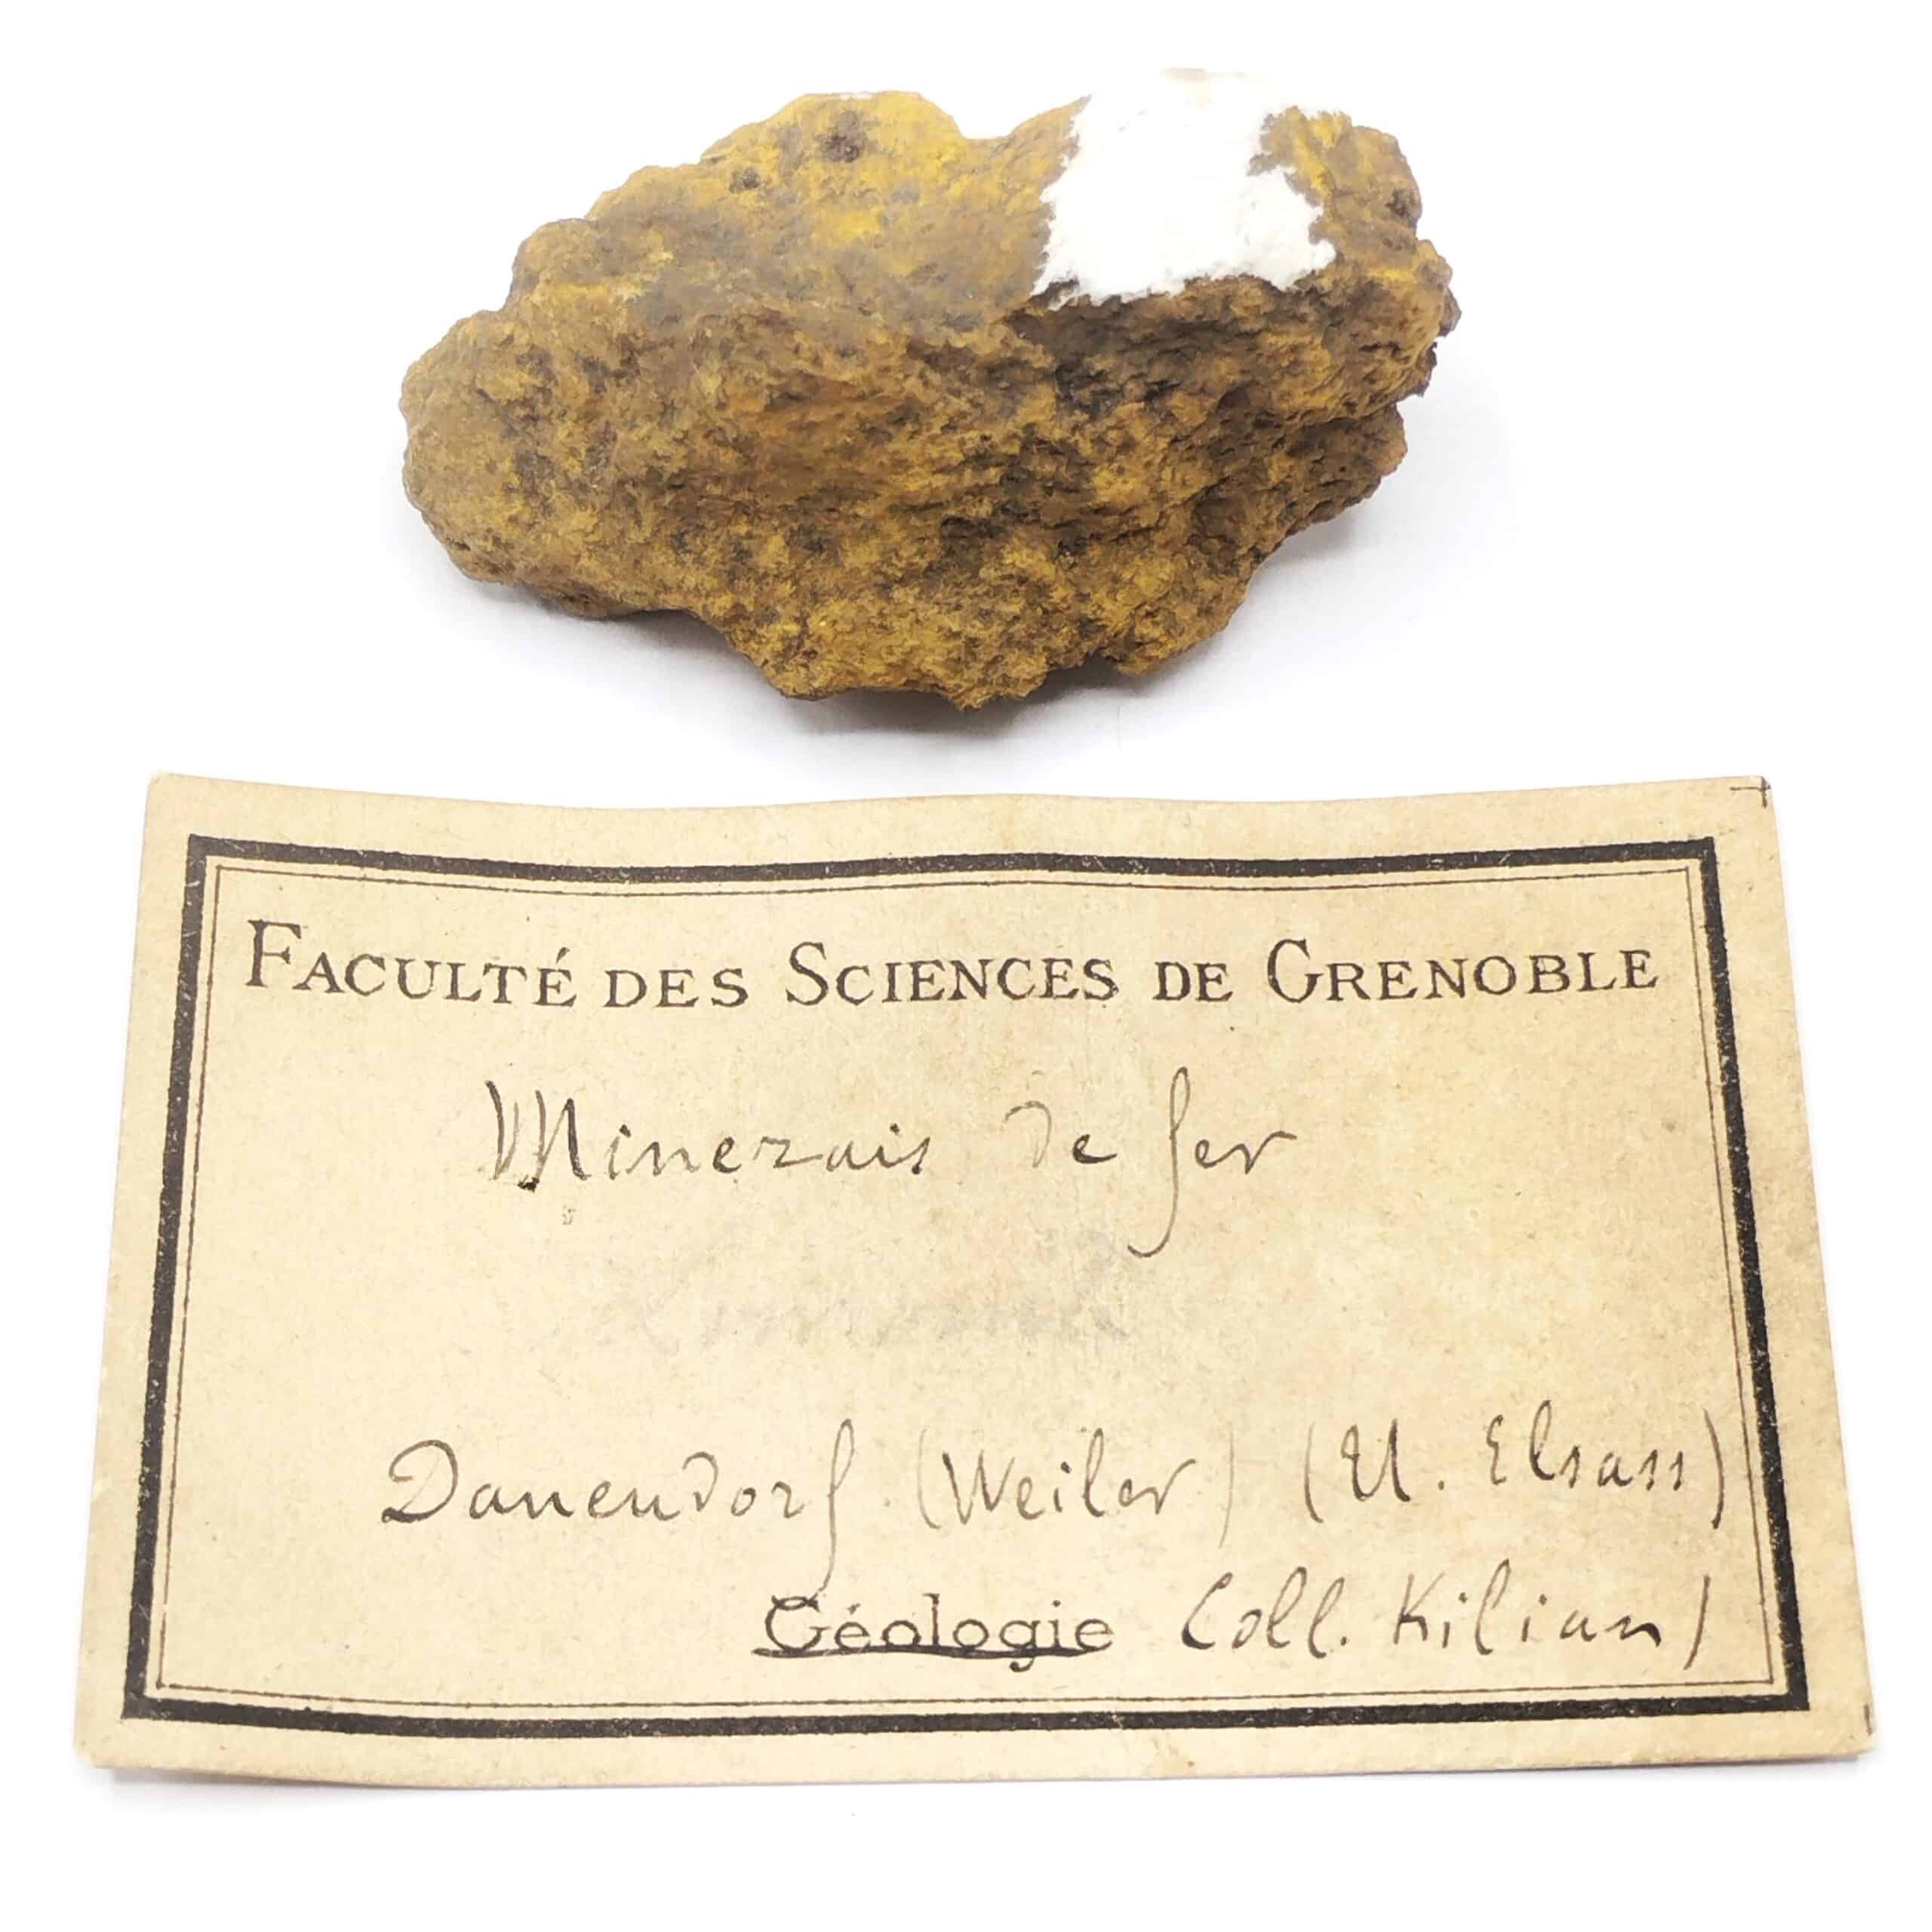 FACULTÉ DES SCIENCES DE GRENOBLE
Minerais de fer
Danendorf (Weiler) (U. Elsass)
Géologie Coll. Kilian)